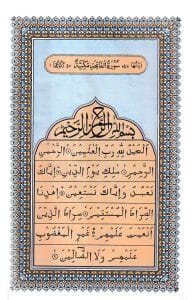 سُوْرَةُ الْفَاتِحَةِ مَكِّيَّةٌ
بِسْمِ اللهِ الرَّحْمٰنِ الرَّحِيْمِ
اَلْحَمْدُ لِلّٰهِ رَبِّ الْعٰلَمِيْنَ الرَّحْمٰنِ
الرَّحِيْمِ مٰلِكِ يَوْمِ الدِّيْنِ اِيَّاكَ
نَعْبُدُ وَاِيَّاكَ نَسْتَعِيْنُ اِهْدِنَا
الصِّرَاطَ الْمُسْتَقِيْمَ صِرَاطَ الَّذِيْنَ
اَنْعَمْتَ عَلَيْهِمْ غَيْرِ الْمَغْضُوْبِ
عَلَيْهِمْ وَلَا الضَّالِّيْنَ